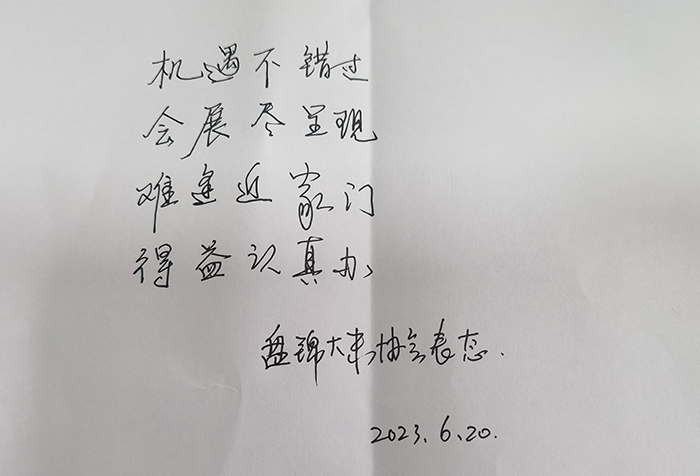 机遇不错过
会展尽呈现
难逢近家门
得益认真办
盘锦大韦协会表态.
2023.6.20.